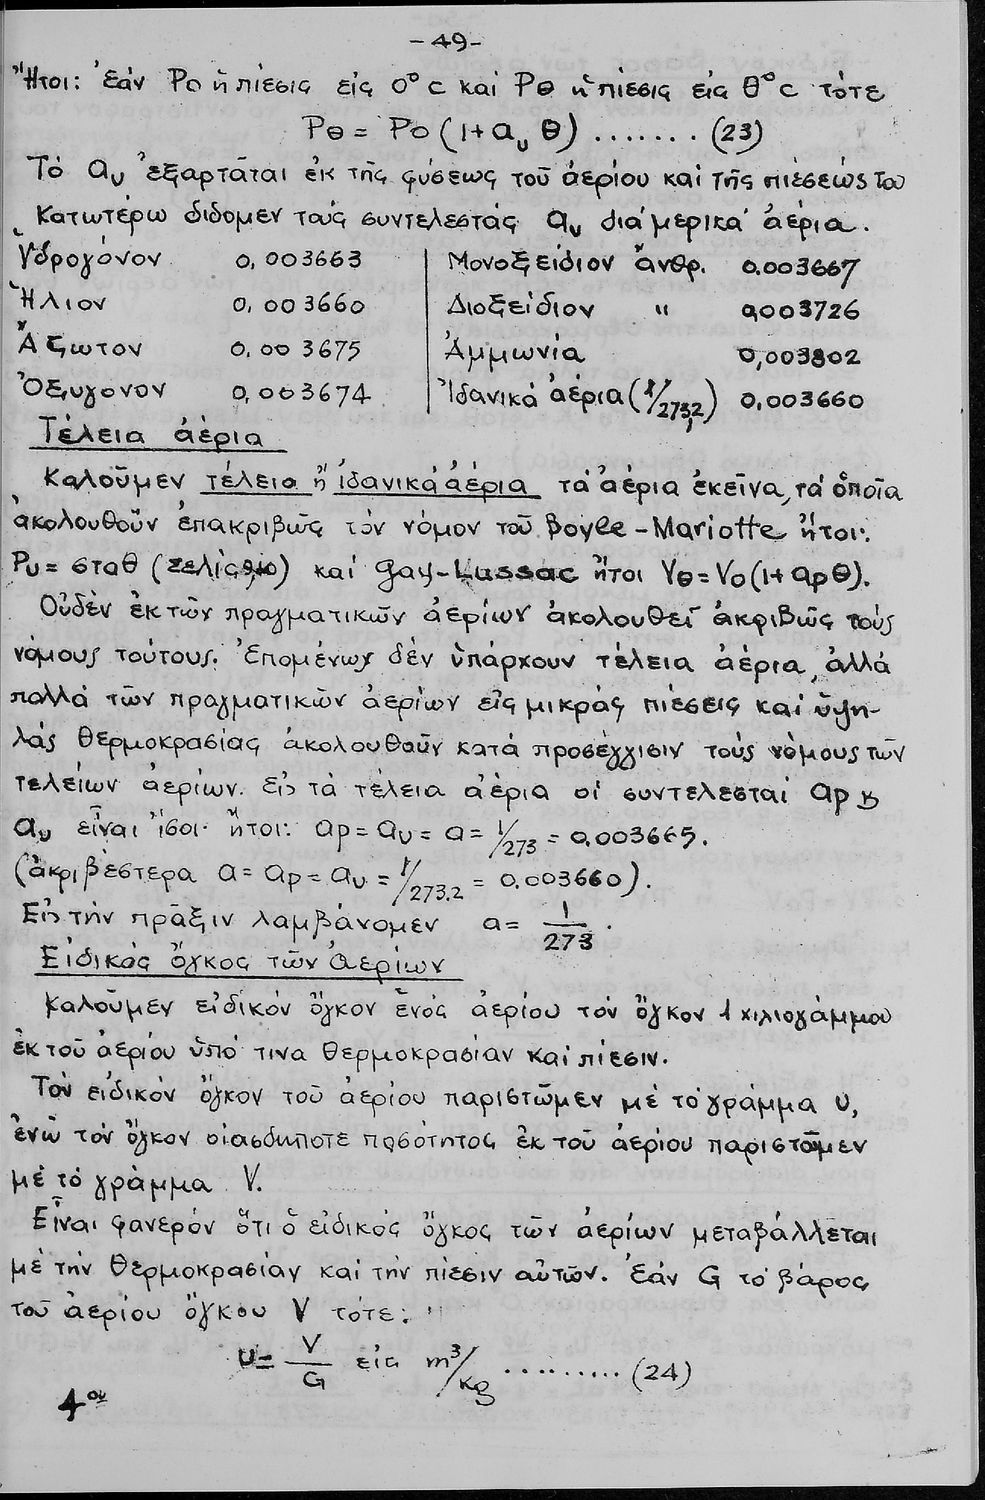 -49-
Ἤτοι: ἐάν Ρο ἡ πίεσις εἰς 0°c καί Ρθ ἡ πίεσις εἰς θ°c τότε
Ρθ = Ρο (1+αυ θ) ....... (23)
Τό αυ ἐξαρτᾶται ἐκ τῆς φύσεως τοῦ ἀερίου καί τῆς πιέσεώς του
Κατωτέρω δίδομεν τούς συντελεστάς αυ διά μερικά ἀέρια.
Ὑδρογόνον 0,003663 Μονοξείδιον ἄνθρ. 0.003667
Ἥλιον 0,003660 Διοξείδιον " 0,003726
Ἄζωτον 0,003675 Ἀμμωνία 0,003802
Ὀξυγόνον 0,003674 Ἰδανικά ἀέρια (1/273,2) 0,003660
Τέλεια ἀέρια
Καλοῦμεν τέλεια ἤ ἰδανικά ἀέρια τά ἀέρια ἐκεῖνα, τά ὁποῖα
ἀκολουθοῦν ἐπακριβῶς τόν νόμον τοῦ Boyle-Mariotte ἤτοι:
Ρυ = σταθ (σελίς) καί Gay-Lussac ἤτοι Vθ=Vο(1+αρθ).
Οὐδέν ἐκ τῶν πραγματικῶν ἀερίων ἀκολουθεῖ ἀκριβῶς τούς
νόμους τούτους. Ἑπομένως δέν ὑπάρχουν τέλεια ἀέρια, ἀλλά
πολλά τῶν πραγματικῶν ἀερίων εἰς μικράς πιέσεις καί ὑψη-
λάς θερμοκρασίας ἀκολουθοῦν κατά προσέγγισιν τούς νόμους τῶν
τελείων ἀερίων. Εἰς τά τέλεια ἀέρια οἱ συντελεσταί αρ &
αυ εἶναι ἴσοι ἤτοι: αρ = αυ = α = 1/273 = 0,003665.
(ἀκριβέστερα α = αρ = αυ = 1/273.2 = 0.003660).
Εἰς τήν πρᾶξιν λαμβάνομεν α = 1/273.
Εἰδικός ὄγκος τῶν ἀερίων
Καλοῦμεν εἰδικόν ὄγκον ἑνός ἀερίου τόν ὄγκον 1 χιλιογάμμου
ἐκ τοῦ ἀερίου ὑπό τινα θερμοκρασίαν καί πίεσιν.
Τόν εἰδικόν ὄγκον τοῦ ἀερίου παριστῶμεν μέ τό γράμμα υ,
ἐνῶ τόν ὄγκον οἱασδήποτε ποσότητος ἐκ τοῦ ἀερίου παριστῶμεν
μέ τό γράμμα V.
Εἶναι φανερόν ὅτι ὁ εἰδικός ὄγκος τῶν ἀερίων μεταβάλλεται
μέ τήν θερμοκρασίαν καί τήν πίεσιν αὐτῶν. Ἐάν G τό βάρος
τοῦ ἀερίου ὄγκου V τότε:
υ = V/G εἰς m³/kg .......... (24)
4ον